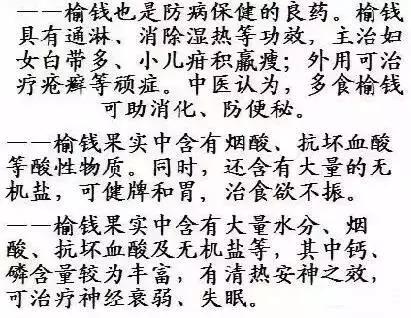 ——榆钱也是防病保健的良药。榆钱
具有通淋、消除湿热等功效，主治妇
女白带多、小儿疳积羸瘦；外用可治
疗疮癣等顽症。中医认为，多食榆钱
可助消化、防便秘。
——榆钱果实中含有烟酸、抗坏血酸
等酸性物质。同时，还含有大量的无
机盐，可健牌和胃，治食欲不振。
——榆钱果实中含有大量水分、烟
酸、抗坏血酸及无机盐等，其中钙、
磷含量较为丰富，有清热安神之效，
可治疗神经衰弱、失眠。